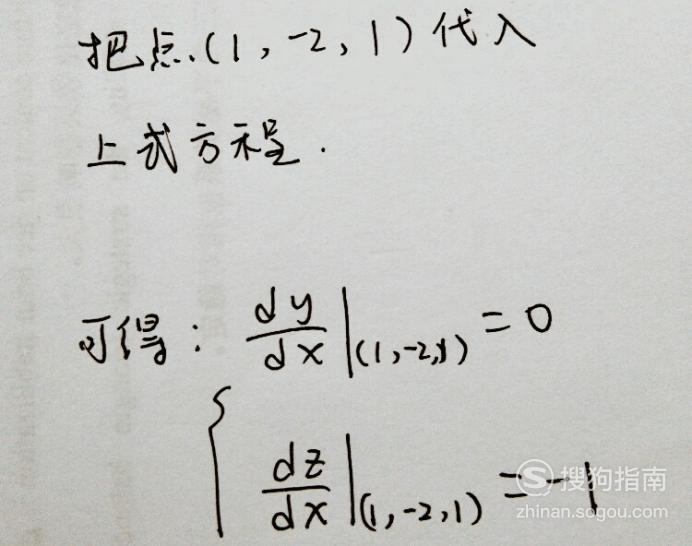 把点(1,-2,1)代入
上式方程.
可得: dy/dx|(1,-2,1) = 0
{ dz/dx|(1,-2,1) = -1
S 搜狗指南
zhinan.sogou.com